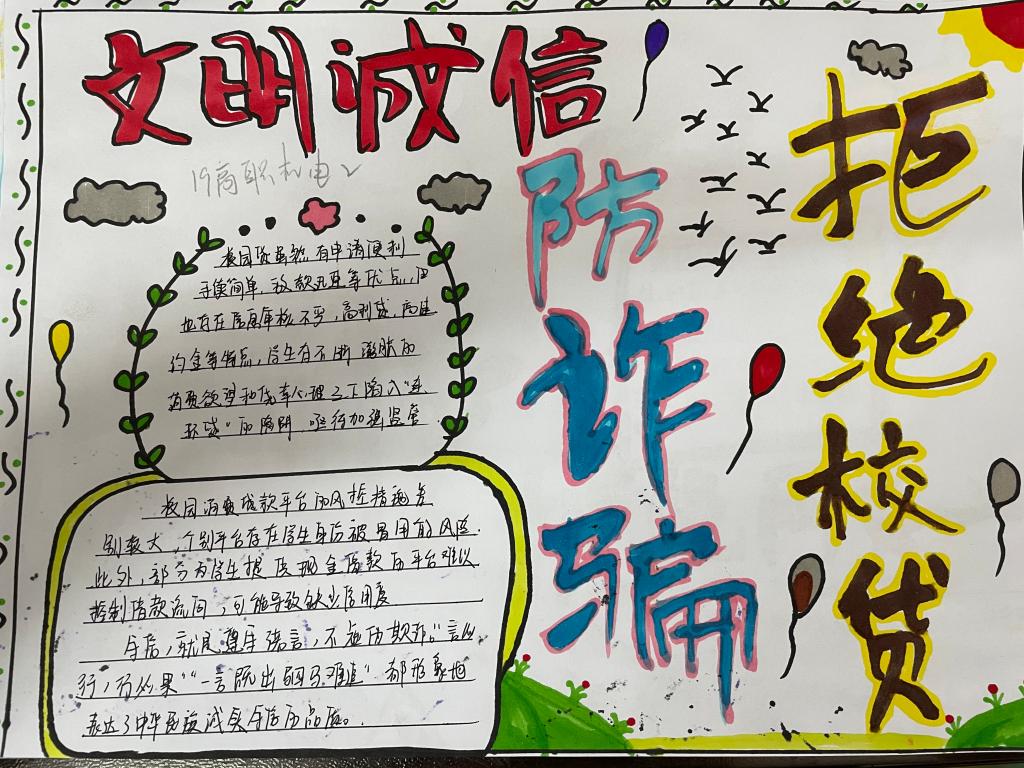 文明诚信
19高职机电2
防诈骗
拒绝校贷
校园贷虽然有申请便利
手续简单、放款迅速等优点,但
也存在信息审核不严,高利贷、高违
约金等特点,学生有不断膨胀的
消费欲望和侥幸心理之下陷入“连
环贷”的陷阱 亟待加强监管
校园消费贷款平台的风控措施差
别较大,个别平台存在学生身份被冒用的风险.
此外,部分为学生提供现金借款的平台难以
控制借款流向,可能导致缺少信用度
守信,就是遵守诺言,不虚伪欺诈。“言必
行,行必果”“一言既出驷马难追”都形象地
表达了中华民族诚实守信的品质。